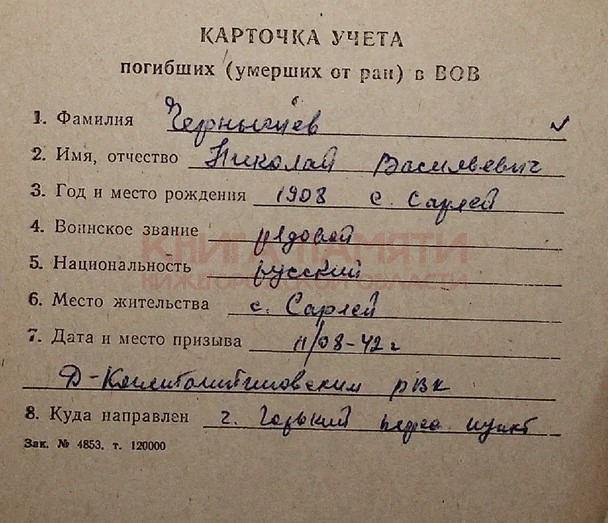 КАРТОЧКА УЧЕТА
погибших (умерших от ран) в ВОВ
1. Фамилия Чернышев
2. Имя, отчество Николай Васильевич
3. Год и место рождения 1908 с. Сарлей
4. Воинское звание рядовой
КНИГА ПАМЯТИ
5. Национальность русский
НИЖЕГОРОДСКОЙ ОБЛАСТИ
6. Место жительства с. Сарлей
7. Дата и место призыва 11/08-42 г
Д-Константиновским РВК
8. Куда направлен г. Горький перес пункт
Зак. № 4853. т. 120000